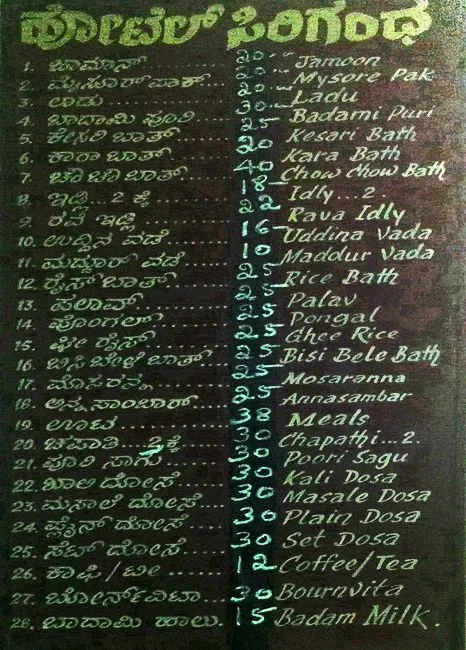 ಹೋಟೆಲ್ ಸಿರಿಗಂಧ
1. ಜಾಮೂನ್......... 20-" Jamoon
2. ಮೈಸೂರ್ ಪಾಕ್.... 20-" Mysore Pak
3. ಲಾಡು............ 20-" Ladu
4. ಬಾದಾಮಿ ಪೂರಿ..... 30-" Badami Puri
5. ಕೇಸರಿ ಬಾತ್....... 25 Kesari Bath
6. ಕಾರಾ ಬಾತ್........ 20 Kara Bath
7. ಚೌ ಚೌ ಬಾತ್....... 40 Chow Chow Bath
8. ಇಡ್ಲಿ...2 ಕ್ಕೆ........ 18- Idly...2.
9. ರವೆ ಇಡ್ಲಿ.......... 22 Rava Idly
10. ಉದ್ದಿನ ವಡೆ....... 16- Uddina Vada
11. ಮದ್ದೂರ್ ವಡೆ...... 10 Maddur Vada
12. ರೈಸ್ ಬಾತ್........ 25 Rice Bath
13. ಪಲಾವ್........... 25 Palav
14. ಪೊಂಗಲ್.......... 25 Pongal
15. ಘೀ ರೈಸ್.......... 25 Ghee Rice
16. ಬಿಸಿಬೇಳೆ ಬಾತ್..... 25 Bisi Bele Bath
17. ಮೊಸರನ್ನ......... 25 Mosaranna
18. ಅನ್ನಸಾಂಬಾರ್..... 25 Annasambar
19. ಊಟ............. 38 Meals
20. ಚಪಾತಿ...2ಕ್ಕೆ...... 30 Chapathi...2.
21. ಪೂರಿ ಸಾಗು........ 30 Poori Sagu
22. ಖಾಲಿ ದೋಸೆ....... 30 Kali Dosa
23. ಮಸಾಲೆ ದೋಸೆ.... 30 Masale Dosa
24. ಪ್ಲೈನ್ ದೋಸೆ...... 30 Plain Dosa
25. ಸೆಟ್ ದೋಸೆ....... 30 Set Dosa
26. ಕಾಫಿ/ಟೀ.......... 12 Coffee/Tea
27. ಬೋರ್ನ್‌ವಿಟಾ...... 30 Bournvita
28. ಬಾದಾಮಿ ಹಾಲು.... 15 Badam Milk.